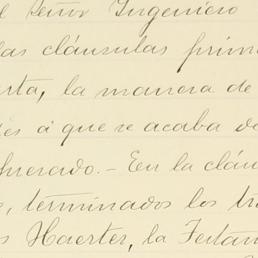 l Señor Ingenicio
las cláusulas prim
arta, la manera de
és á que se acaba de
nerado. - En la cláu
, terminados los tr
s Haerter, la Testam